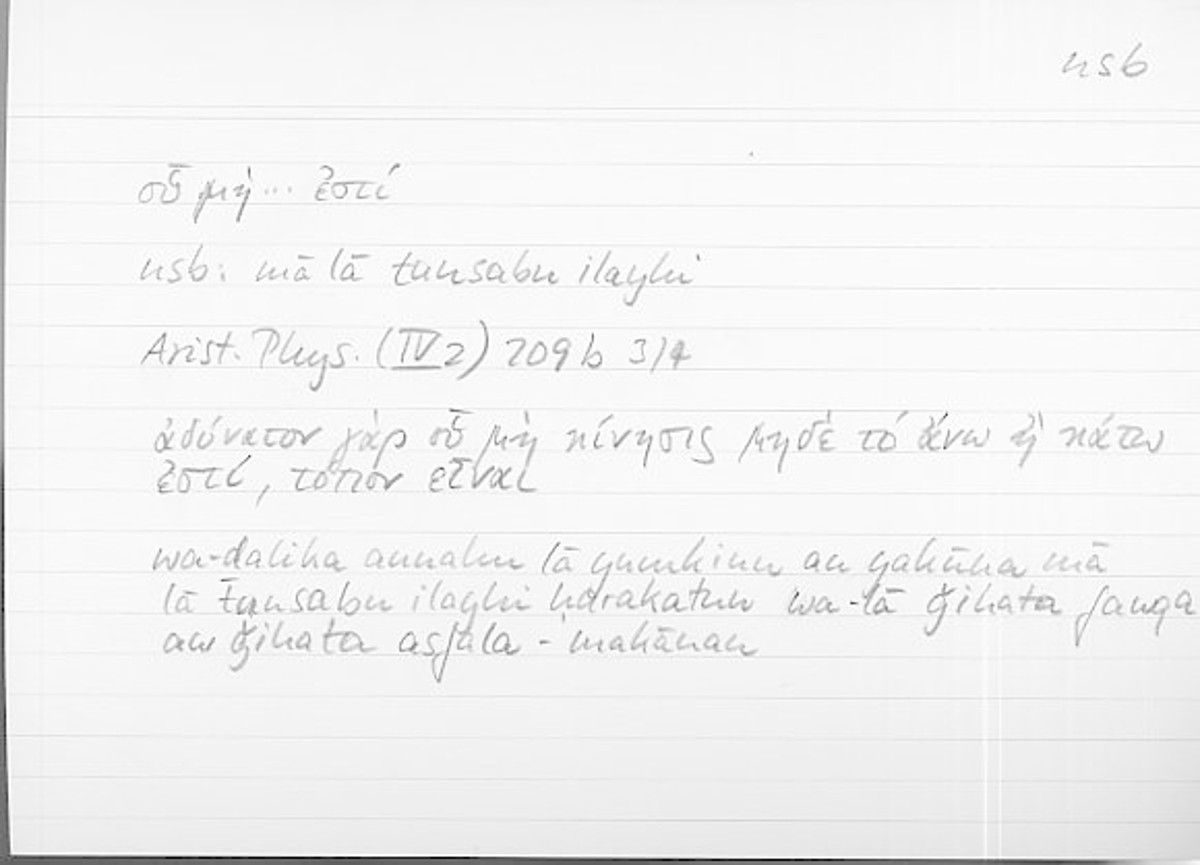 nsb
οὗ μή... ἐστί
nsb: mā lā tunsabu ilayhi
Arist. Phys. (IV 2) 209 b 3/4
ἀδύνατον γὰρ οὗ μὴ κίνησις μηδὲ τὸ ἄνω ἢ κάτω
ἐστί, τόπον εἶναι
wa-dalika annahu lā yumkinu an yakūna mā
lā tunsabu ilayhi harakatun wa-lā ǧihata fauqa
au ǧihata asfala - makānan